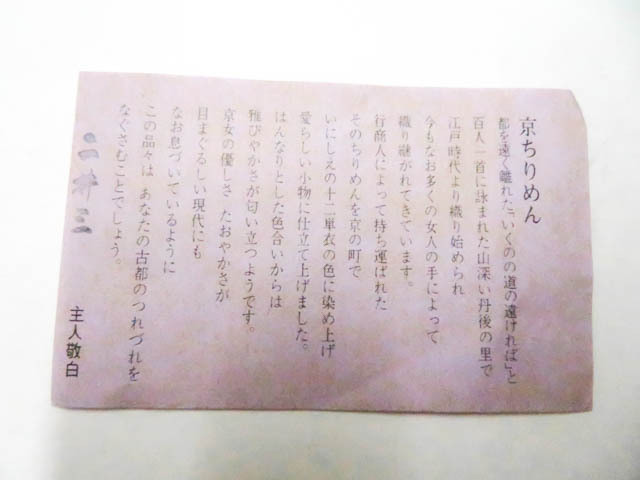 京ちりめん
都を遠く離れた「いくのの道の遠ければ」と
百人一首に詠まれた山深い丹後の里で
江戸時代より織り始められ
今もなお多くの女人の手によって
織り継がれてきています。
行商人によって持ち運ばれた
そのちりめんを京の町で
いにしえの十二単衣の色に染め上げ
愛らしい小物に仕立て上げました。
はんなりとした色合いからは
雅びやかさが匂い立つようです。
京女の優しさ たおやかさが
目まぐるしい現代にも
なお息づいているように
この品々は あなたの古都のつれづれを
なぐさむことでしょう。
主人敬白